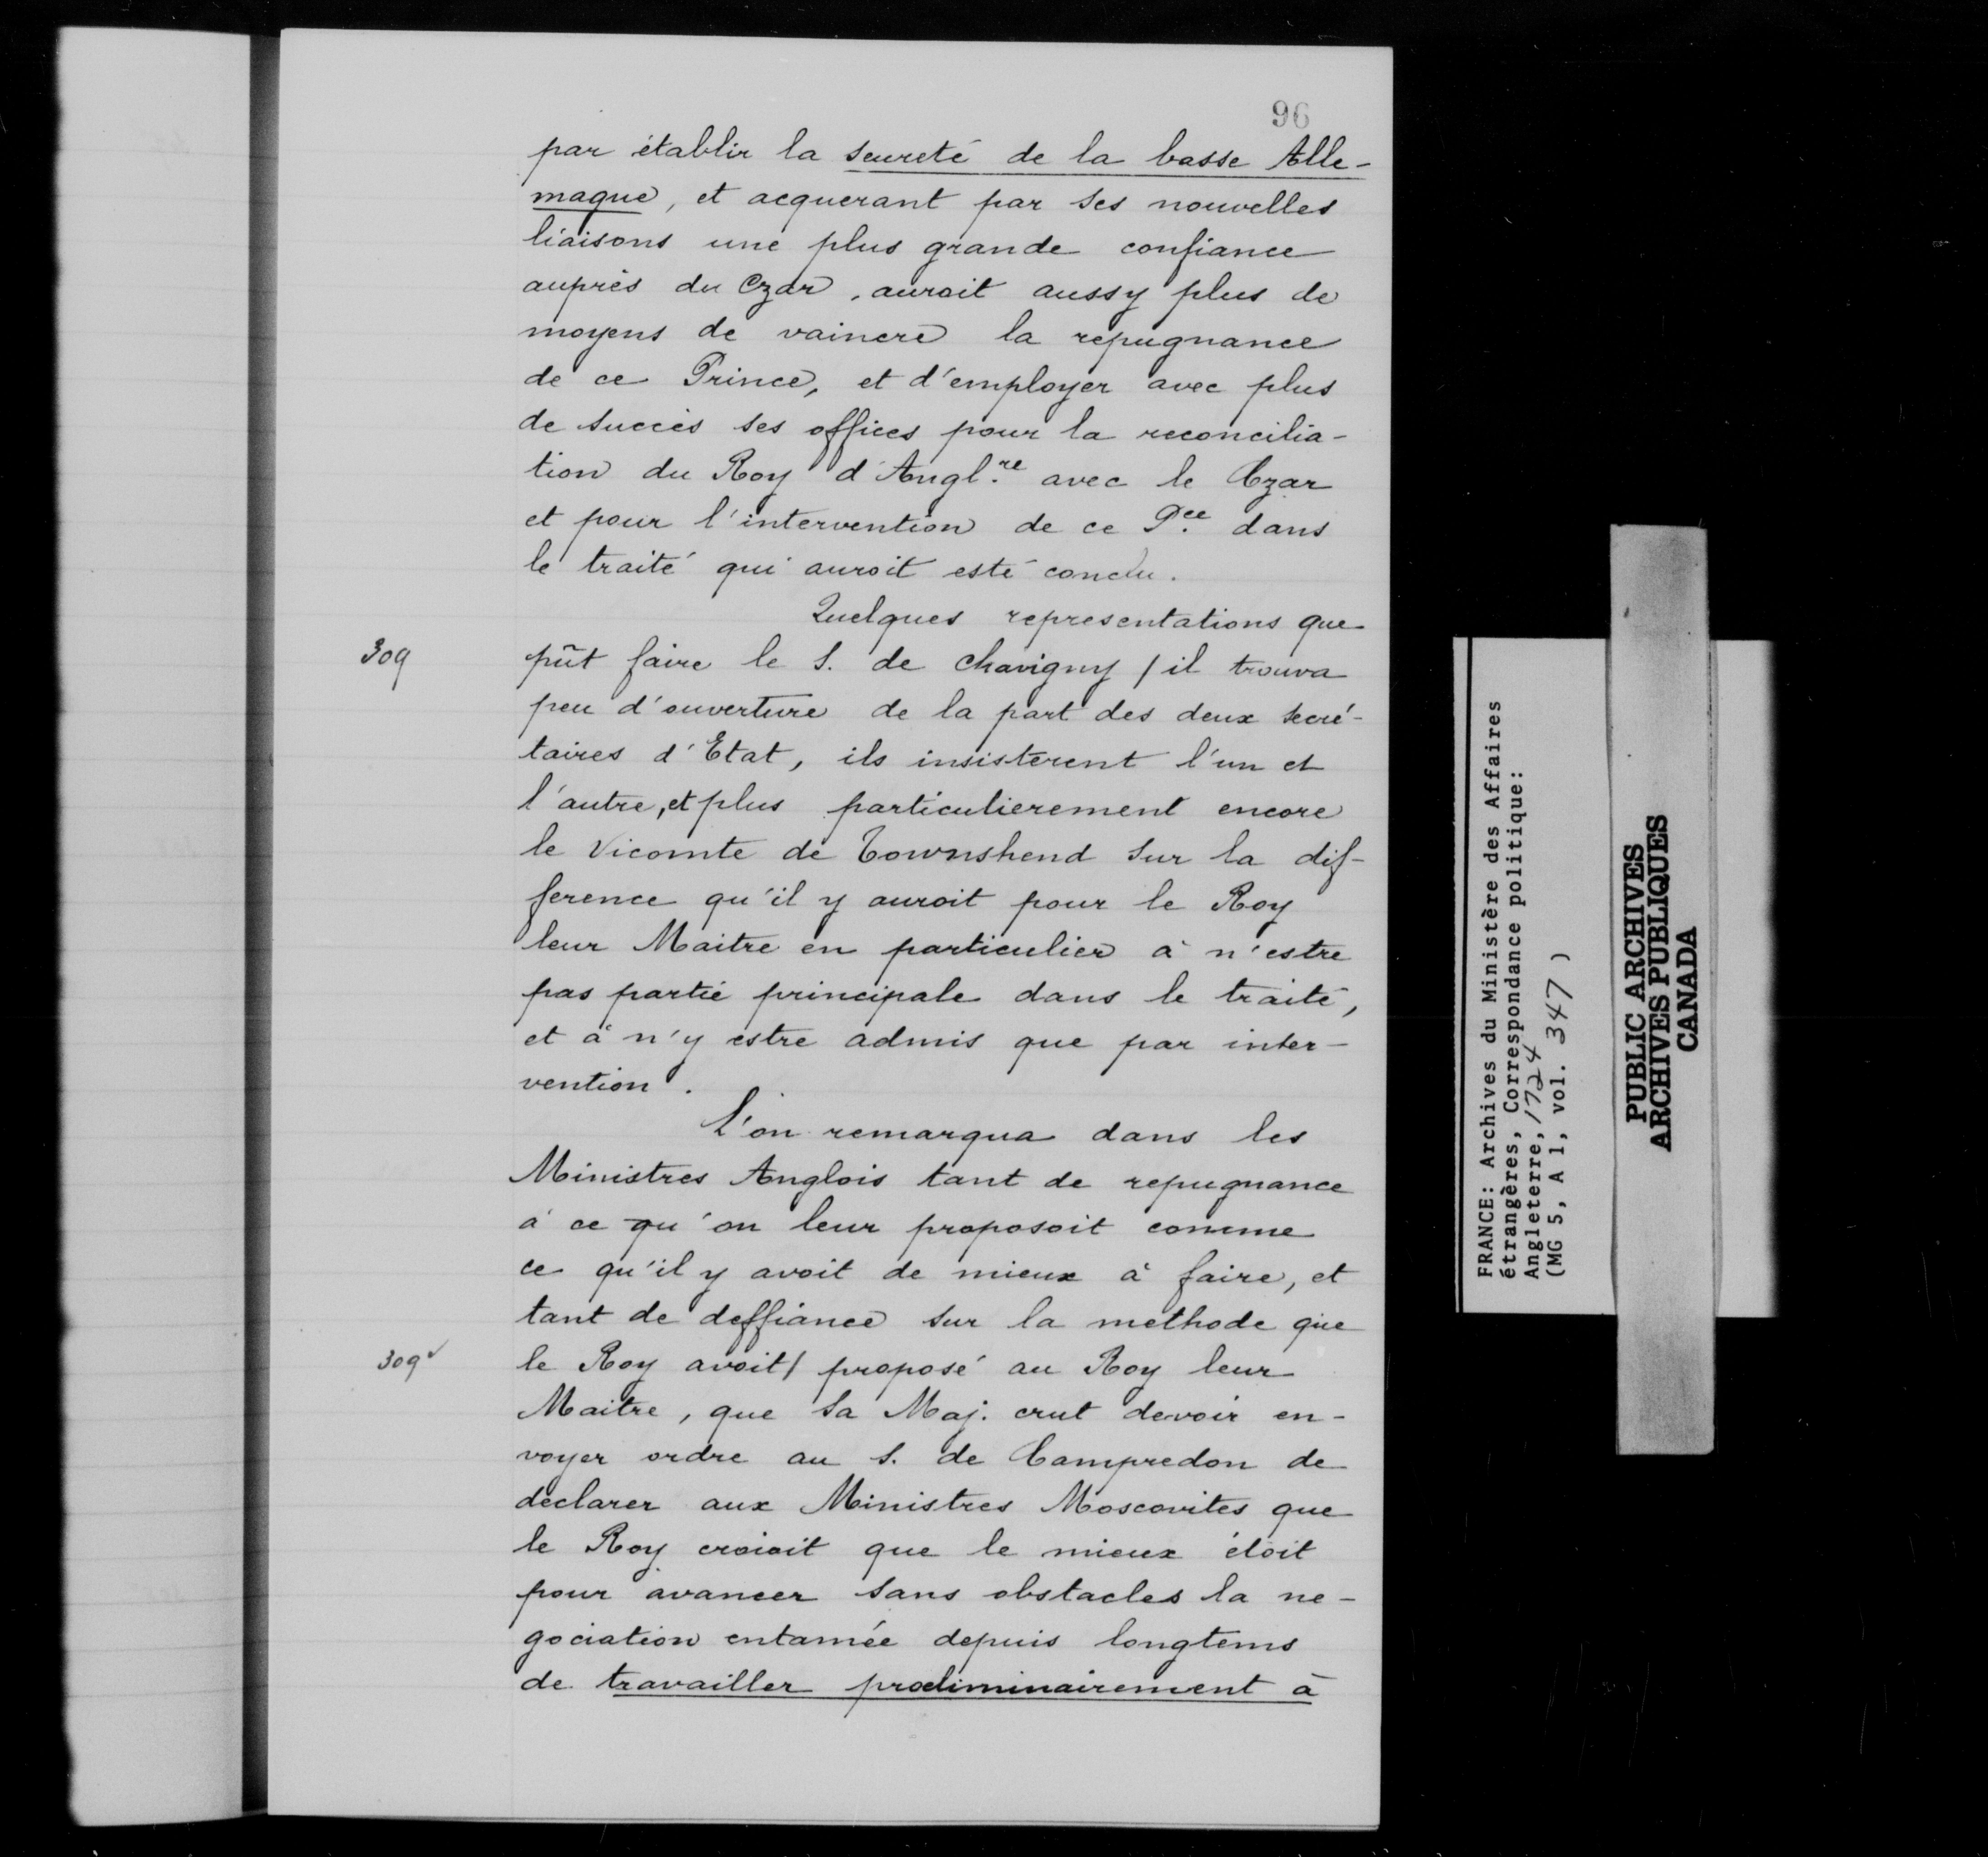 96
par établir la seureté de la basse Alle-
magne, et acquerant par ses nouvelles
liaisons une plus grande confiance
auprès du Czar, auroit aussy plus de
moyens de vaincre la repugnance
de ce Prince, et d'employer avec plus
de succès ses offices pour la reconcilia-
tion du Roy d'Angl.re avec le Czar
et pour l'intervention de ce P.ce dans
le traité qui auroit esté conclu.
Quelques representations que
309 pût faire le S. de Chavigny / il trouva
peu d'ouverture de la part des deux secré-
taires d'Etat, ils insisterent l'un et
l'autre, et plus particulierement encore
le Vicomte de Townshend sur la dif-
ference qu'il y auroit pour le Roy
leur Maitre en particulier à n'estre
pas partie principale dans le traité,
et à n'y estre admis que par inter-
vention.
L'on remarqua dans les
Ministres Anglois tant de repugnance
à ce qu'on leur proposoit comme
ce qu'il y avoit de mieux à faire, et
tant de deffiance sur la methode que
309v le Roy avoit / proposé au Roy leur
Maitre, que Sa Maj. crut devoir en-
voyer ordre au S. de Campredon de
declarer aux Ministres Moscovites que
le Roy croioit que le mieux étoit
pour avancer sans obstacles la ne-
gociation entamée depuis longtems
de travailler proeliminairement à
FRANCE: Archives du Ministère des Affaires
étrangères, Correspondance politique:
Angleterre, 1724
(MG 5, A 1, vol. 347 )
PUBLIC ARCHIVES
ARCHIVES PUBLIQUES
CANADA